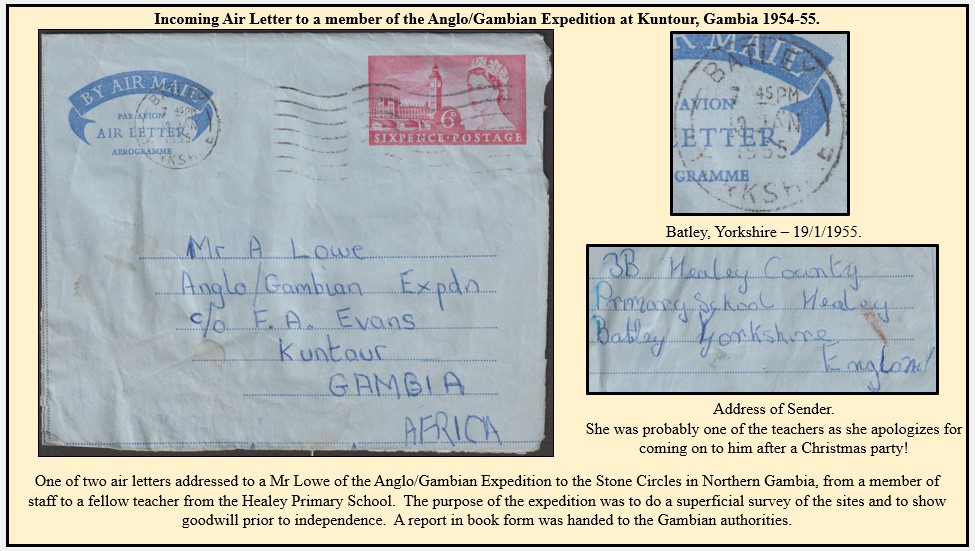 Incoming Air Letter to a member of the Anglo/Gambian Expedition at Kuntour, Gambia 1954-55.
BY AIR MAIL
PAR AVION
AIR LETTER
AEROGRAMME
BATLEY
45PM
19 JAN
1955
YORKSHIRE
6D
SIXPENCE·POSTAGE
Mr A Lowe
Anglo/Gambian Expdn
c/o E. A. Evans
Kuntaur
GAMBIA
AFRICA
R MAIL
BATLEY
45PM
AVION
19 JAN
LETTER
1955
GRAMME
RKSH E
Batley, Yorkshire – 19/1/1955.
3B Healey County
Primary School Healey
Batley Yorkshire
England
Address of Sender.
She was probably one of the teachers as she apologizes for
coming on to him after a Christmas party!
One of two air letters addressed to a Mr Lowe of the Anglo/Gambian Expedition to the Stone Circles in Northern Gambia, from a member of
staff to a fellow teacher from the Healey Primary School.  The purpose of the expedition was to do a superficial survey of the sites and to show
goodwill prior to independence.  A report in book form was handed to the Gambian authorities.